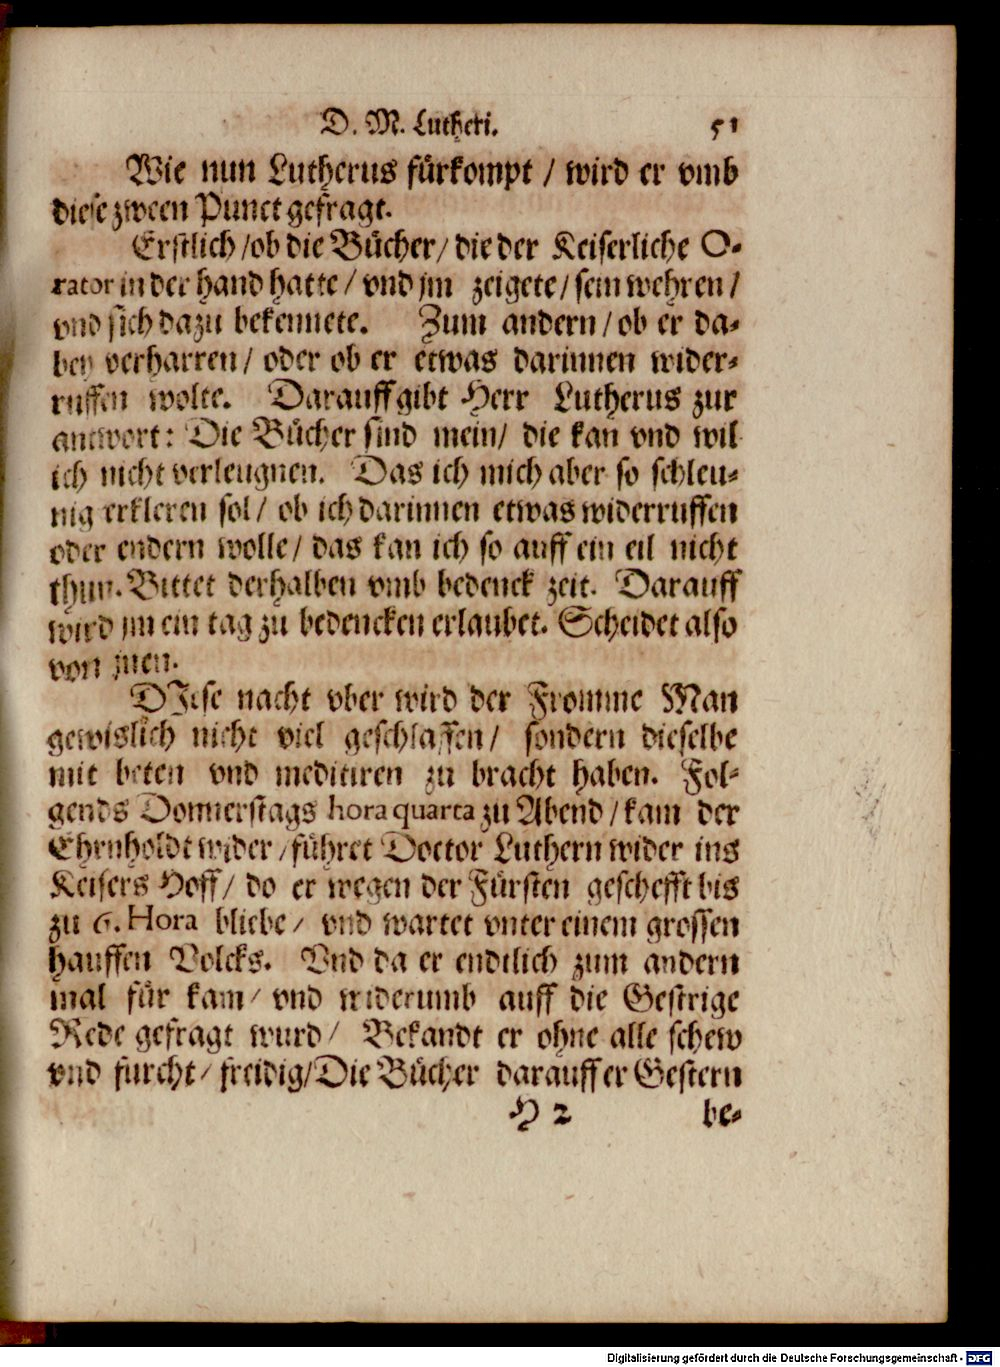 D. M. Lutheri. 51
Wie nun Lutherus fürkompt / wird er vmb
diese zween Punct gefragt.
Erstlich / ob die Bücher / die der Keiserliche O-
rator in der hand hatte / vnd jm zeigete / sein wehren /
vnd sich dazu bekennete. Zum andern / ob er da-
bey verharren / oder ob er etwas darinnen wider-
ruffen wolte. Darauff gibt Herr Lutherus zur
antwort: Die Bücher sind mein / die kan vnd wil
ich nicht verleugnen. Das ich mich aber so schleu-
nig erkleren sol / ob ich darinnen etwas widerruffen
oder endern wolle / das kan ich so auff ein eil nicht
thun. Bittet derhalben vmb bedenck zeit. Darauff
wird jm ein tag zu bedencken erlaubet. Scheidet also
von jnen.
DIese nacht vber wird der Fromme Man
gewislich nicht viel geschlaffen / sondern dieselbe
mit beten vnd meditiren zu bracht haben. Fol-
gends Donnerstags hora quarta zu Abend / kam der
Ehrnholdt wider / führet Doctor Luthern wider ins
Keisers Hoff / do er wegen der Fürsten geschefft bis
zu 6. Hora bliebe / vnd wartet vnter einem grossen
hauffen Volcks. Vnd da er endtlich zum andern
mal für kam / vnd widerumb auff die Gestrige
Rede gefragt wurd / Bekandt er ohne alle schew
vnd furcht / freidig / Die Bücher darauff er Gestern
H 2 be-
Digitalisierung gefördert durch die Deutsche Forschungsgemeinschaft - DFG